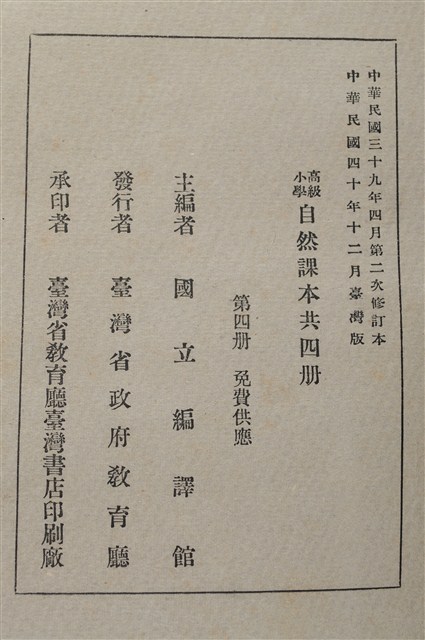 中華民國三十九年四月第二次修訂本
中華民國四十年十二月臺灣版
高級小學 自然課本共四册
第四册 免費供應
主編者 國立編譯館
發行者 臺灣省政府教育廳
承印者 臺灣省教育廳臺灣書店印刷廠